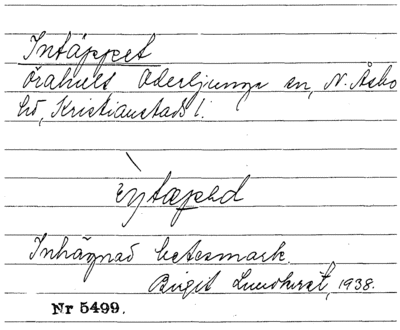 Intäppet
Örahult Oderljunga sn, N. Åsbo
hd, Kristianstads l.
Inhägnad betesmark.
Birgit Lundkvist, 1938.
Nr 5499.